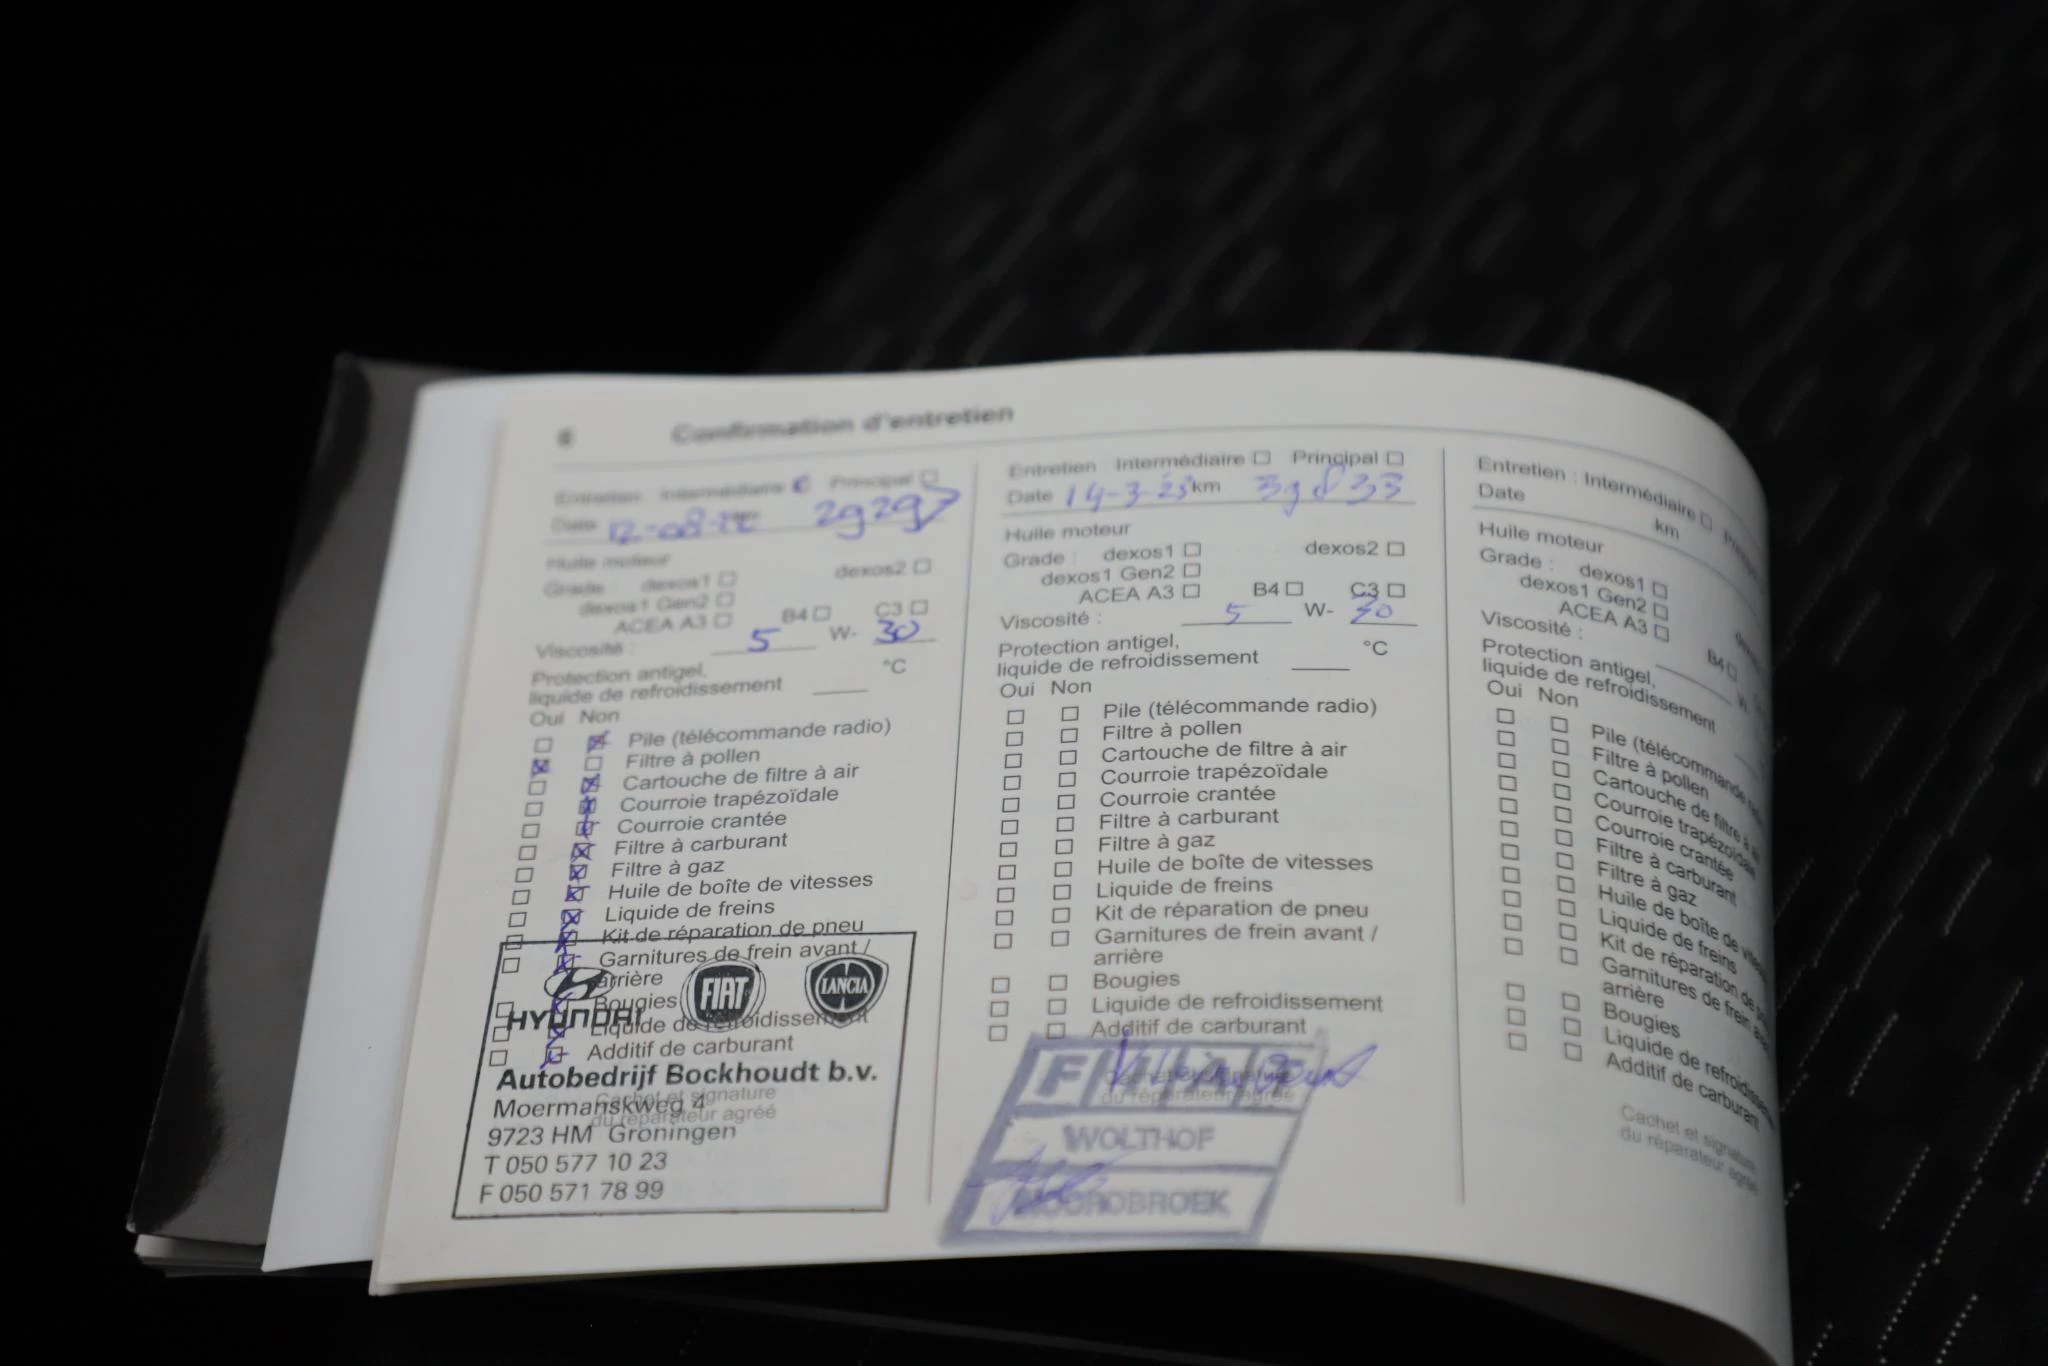 6 Confirmation d'entretien
Entretien : Intermédiaire Principal
Date 12-08-22 km
Huile moteur
Grade : dexos1 dexos2
dexos1 Gen2
ACEA A3 B4 C3
Viscosité : 5 W- 30
Protection antigel, °C
liquide de refroidissement
Oui Non
Pile (télécommande radio)
Filtre à pollen
Cartouche de filtre à air
Courroie trapézoïdale
Courroie crantée
Filtre à carburant
Filtre à gaz
Huile de boîte de vitesses
Liquide de freins
Kit de réparation de pneu
Garnitures de frein avant /
arrière
Bougies
Liquide de refroidissement
Additif de carburant
Cachet et signature
du réparateur agréé
HYUNDAI FIAT LANCIA
Autobedrijf Bockhoudt b.v.
Moermanskweg 4
9723 HM Groningen
T 050 577 10 23
F 050 571 78 99
Entretien Intermédiaire Principal
Date 14-3-25 km
Huile moteur
Grade : dexos1 dexos2
dexos1 Gen2
ACEA A3 B4 C3
Viscosité : 5 W- 30
Protection antigel, °C
liquide de refroidissement
Oui Non
Pile (télécommande radio)
Filtre à pollen
Cartouche de filtre à air
Courroie trapézoïdale
Courroie crantée
Filtre à carburant
Filtre à gaz
Huile de boîte de vitesses
Liquide de freins
Kit de réparation de pneu
Garnitures de frein avant /
arrière
Bougies
Liquide de refroidissement
Additif de carburant
Cachet et signature
du réparateur agréé
FIAT
WOLTHOF
NOORDBROEK
Entretien : Intermédiaire
Date km
Huile moteur
Grade : dexos1
dexos1 Gen2
ACEA A3 B4
Viscosité : W-
Protection antigel,
liquide de refroidissement
Oui Non
Pile (télécommande
Filtre à pollen
Cartouche de filtre à air
Courroie trapézoïdale
Courroie crantée
Filtre à carburant
Filtre à gaz
Huile de boîte de
Liquide de freins
Kit de réparation de
Garnitures de frein
arrière
Bougies
Liquide de
Additif de carburant
Cachet et signature
du réparateur agréé